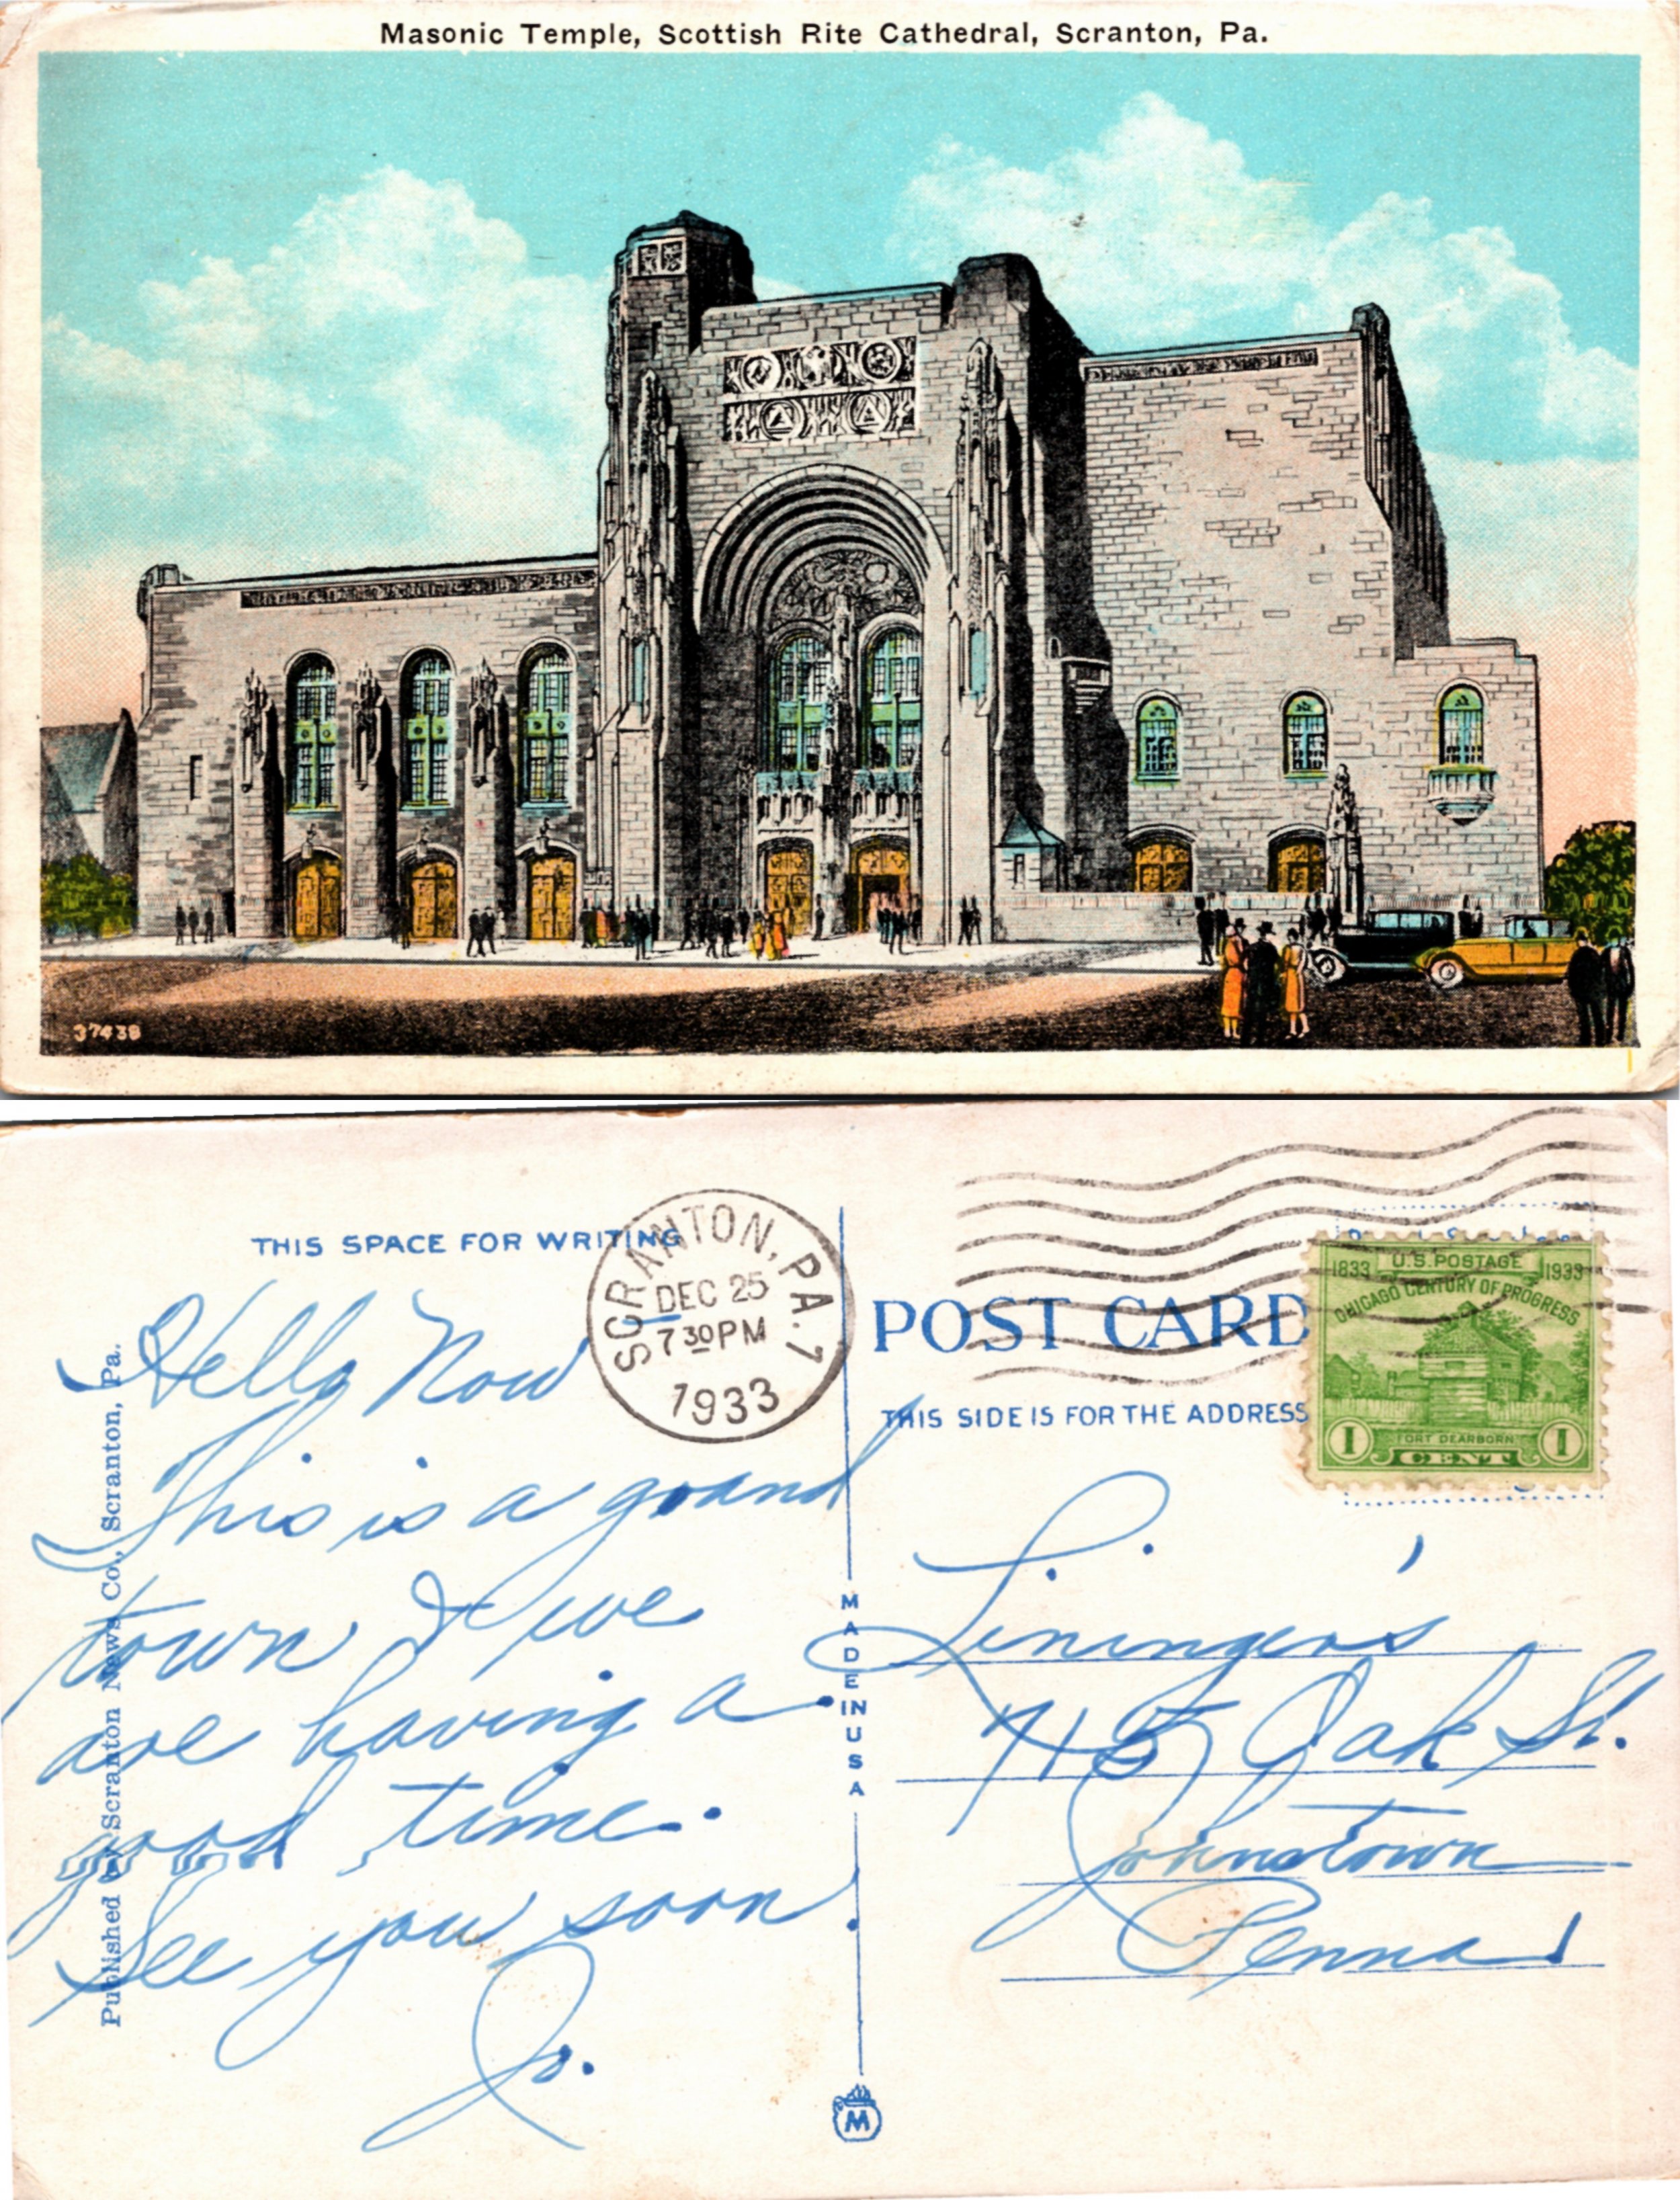 Masonic Temple, Scottish Rite Cathedral, Scranton, Pa.
37438
THIS SPACE FOR WRITING
SCRANTON, PA. 7
DEC 25
7 30 PM
1933
Hello Now
This is a grand
town & we
are having a
good time.
See you soon.
Jo.
Published by Scranton News Co., Scranton, Pa.
MADE IN USA
M
POST CARD
THIS SIDE IS FOR THE ADDRESS
U.S. POSTAGE
1833 1933
CHICAGO CENTURY OF PROGRESS
FORT DEARBORN
1 CENT 1
Lininger's
Oak St.
Johnstown
Penna